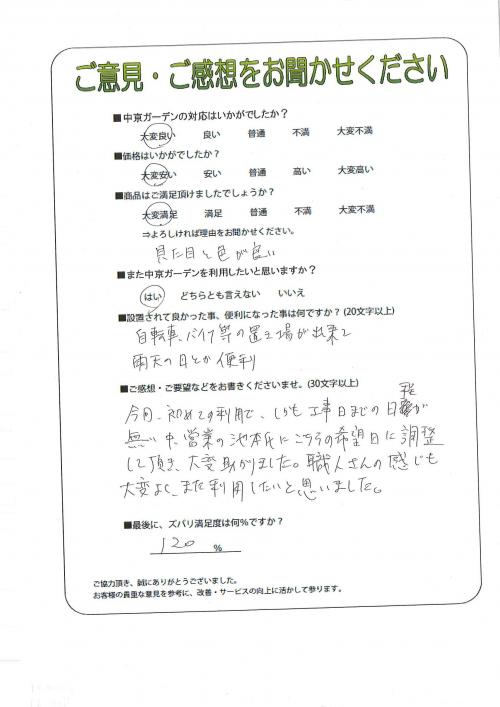 ご意見・ご感想をお聞かせください
■中京ガーデンの対応はいかがでしたか？
大変良い 良い 普通 不満 大変不満
■価格はいかがでしたか？
大変安い 安い 普通 高い 大変高い
■商品はご満足頂けましたでしょうか？
大変満足 満足 普通 不満 大変不満
⇒よろしければ理由をお聞かせください。
見た目と色が良い
■また中京ガーデンを利用したいと思いますか？
はい どちらとも言えない いいえ
■設置されて良かった事、便利になった事は何ですか？(20文字以上)
自転車、バイク等の置き場が出来て
雨天の日とか便利
■ご感想・ご要望などをお書きくださいませ。(30文字以上)
今回、初めての利用で、しかも工事日までの日程が
無い中、営業の池本氏にこちらの希望日に調整
して頂き、大変助かりました。職人さんの感じも
大変よく、また利用したいと思いました。
■最後に、ズバリ満足度は何％ですか？
120 ％
ご協力頂き、誠にありがとうございました。
お客様の貴重な意見を参考に、改善・サービスの向上に活かして参ります。